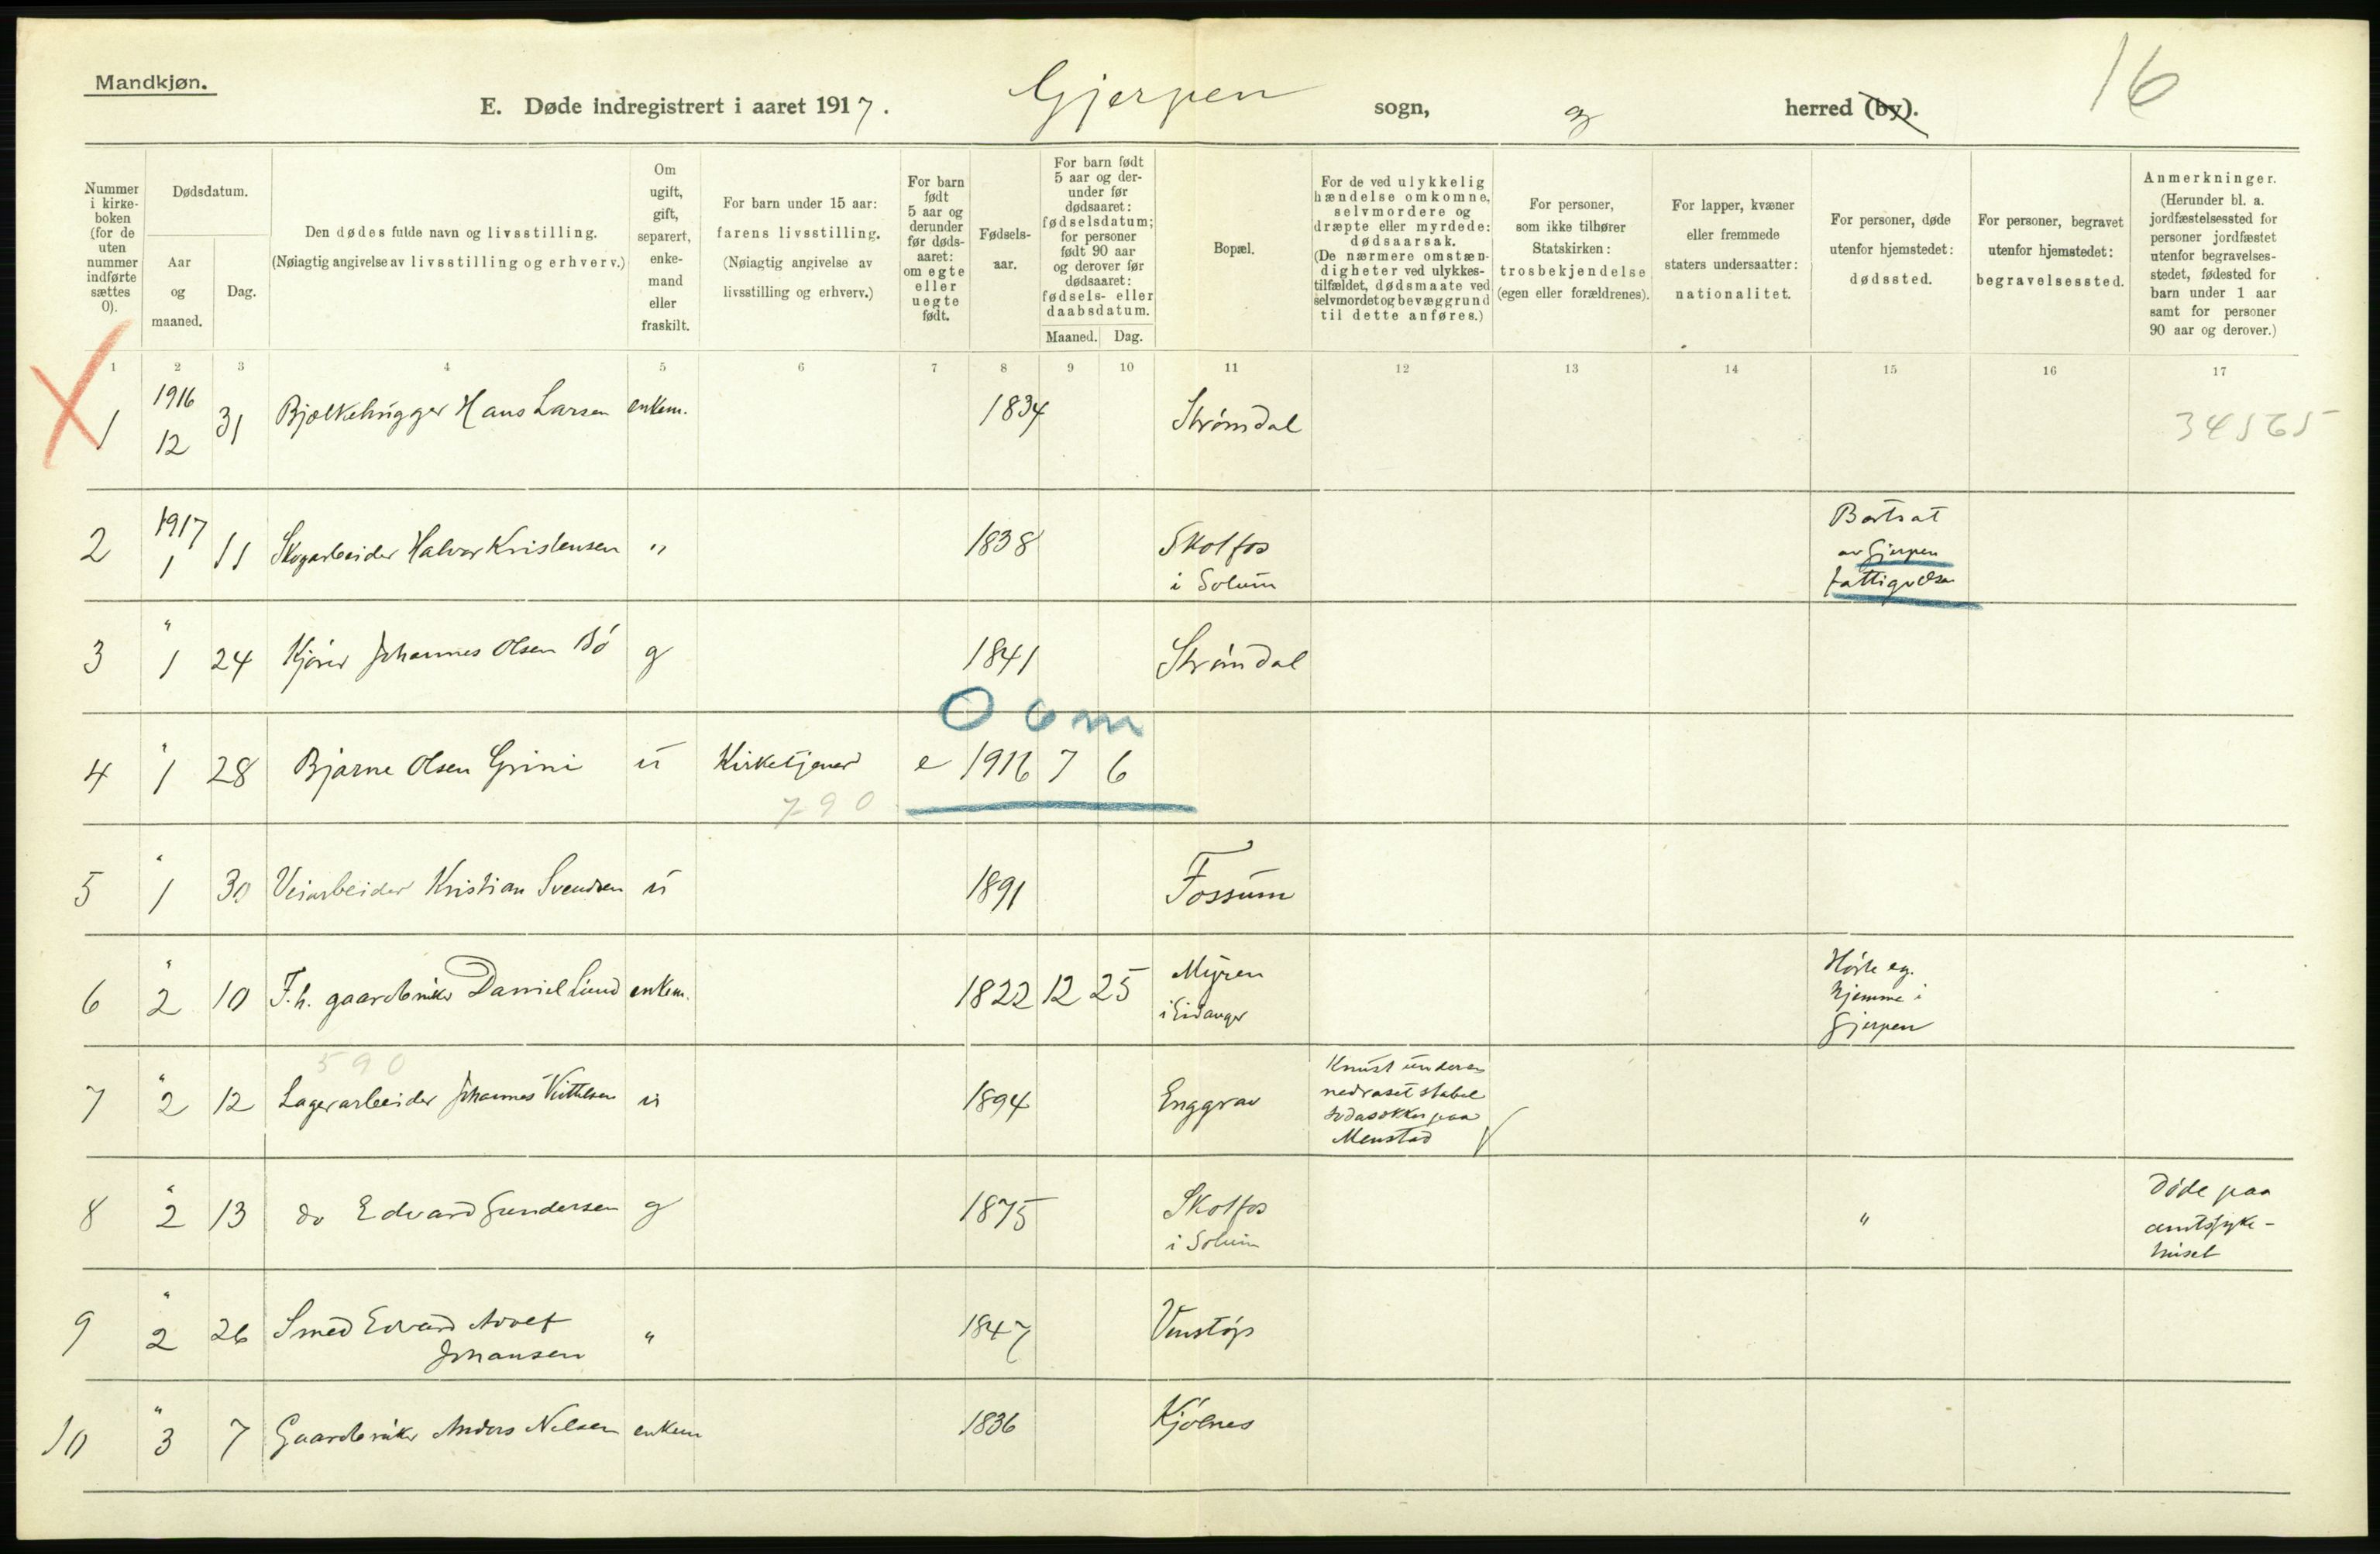 Mandkjøn.
16
E. Døde indregistrert i aaret 1917. Gjerpen sogn, og herred (by).
Nummer i kirkeboken (for de uten nummer indførte sættes 0).
Dødsdatum.
Aar og maaned.
Dag.
Den dødes fulde navn og livsstilling.
(Nøiagtig angivelse av livsstilling og erhverv.)
Om ugift, gift, separert, enkemand eller fraskilt.
For barn under 15 aar:
farens livsstilling.
(Nøiagtig angivelse av
livsstilling og erhverv.)
For barn født 5 aar og derunder før dødsaaret: om egte eller uegte født.
Fødselsaar.
For barn født 5 aar og derunder før dødsaaret: fødselsdatum; for personer født 90 aar og derover før dødsaaret: fødsels- eller daabsdatum.
Maaned. Dag.
Bopæl.
For de ved ulykkelig hændelse omkomne, selvmordere og dræpte eller myrdede: dødsaarsak.
(De nærmere omstændigheter ved ulykkestilfældet, dødsmaate ved selvmordet og bevæggrund til dette anføres.)
For personer, som ikke tilhører Statskirken: trosbekjendelse (egen eller forældrenes).
For lapper, kvæner eller fremmede staters undersaatter: nationalitet.
For personer, døde utenfor hjemstedet: dødssted.
For personer, begravet utenfor hjemstedet: begravelsessted.
Anmerkninger.
(Herunder bl. a. jordfæstelsessted for personer jordfæstet utenfor begravelsesstedet, fødested for barn under 1 aar samt for personer 90 aar og derover.)
1 2 3 4 5 6 7 8 9 10 11 12 13 14 15 16 17
1 1916 12 31 Bjelkehugger Hans Larsen enkem. 1834 Strømdal 34565
2 1917 1 11 Skogarbeider Halvor Kristensen " 1838 Skotfos
i Solum
Bortsat
av Gjerpen
fattigvæsen
3 " 1 24 Kjører Johannes Olsen Bø g 1841 Strømdal
0 6 m
4 " 1 28 Bjarne Olsen Grini u Kirketjener e 1916 7 6
790
5 " 1 30 Veiarbeider Kristian Svendsen u 1891 Fossum
6 " 2 10 F.h. gaardbruker Daniel Lund enkem. 1822 12 25 Myren
i Eidanger
Hørte eg.
hjemme i
Gjerpen
590
7 " 2 12 Lagerarbeider Johannes Kittilsen u 1894 Enggrav
Knust under en
nedraset stabel
sodasækker paa
Menstad
8 " 2 13 do Edvard Gundersen g 1875 Skotfos
i Solum
"
Døde paa
amtssyke-
huset
9 " 2 26 Smed Edvard Adolf
Johansen " 1847 Venstøp
10 " 3 7 Gaardbruker Anders Nilsen enkem 1836 Kjølnes